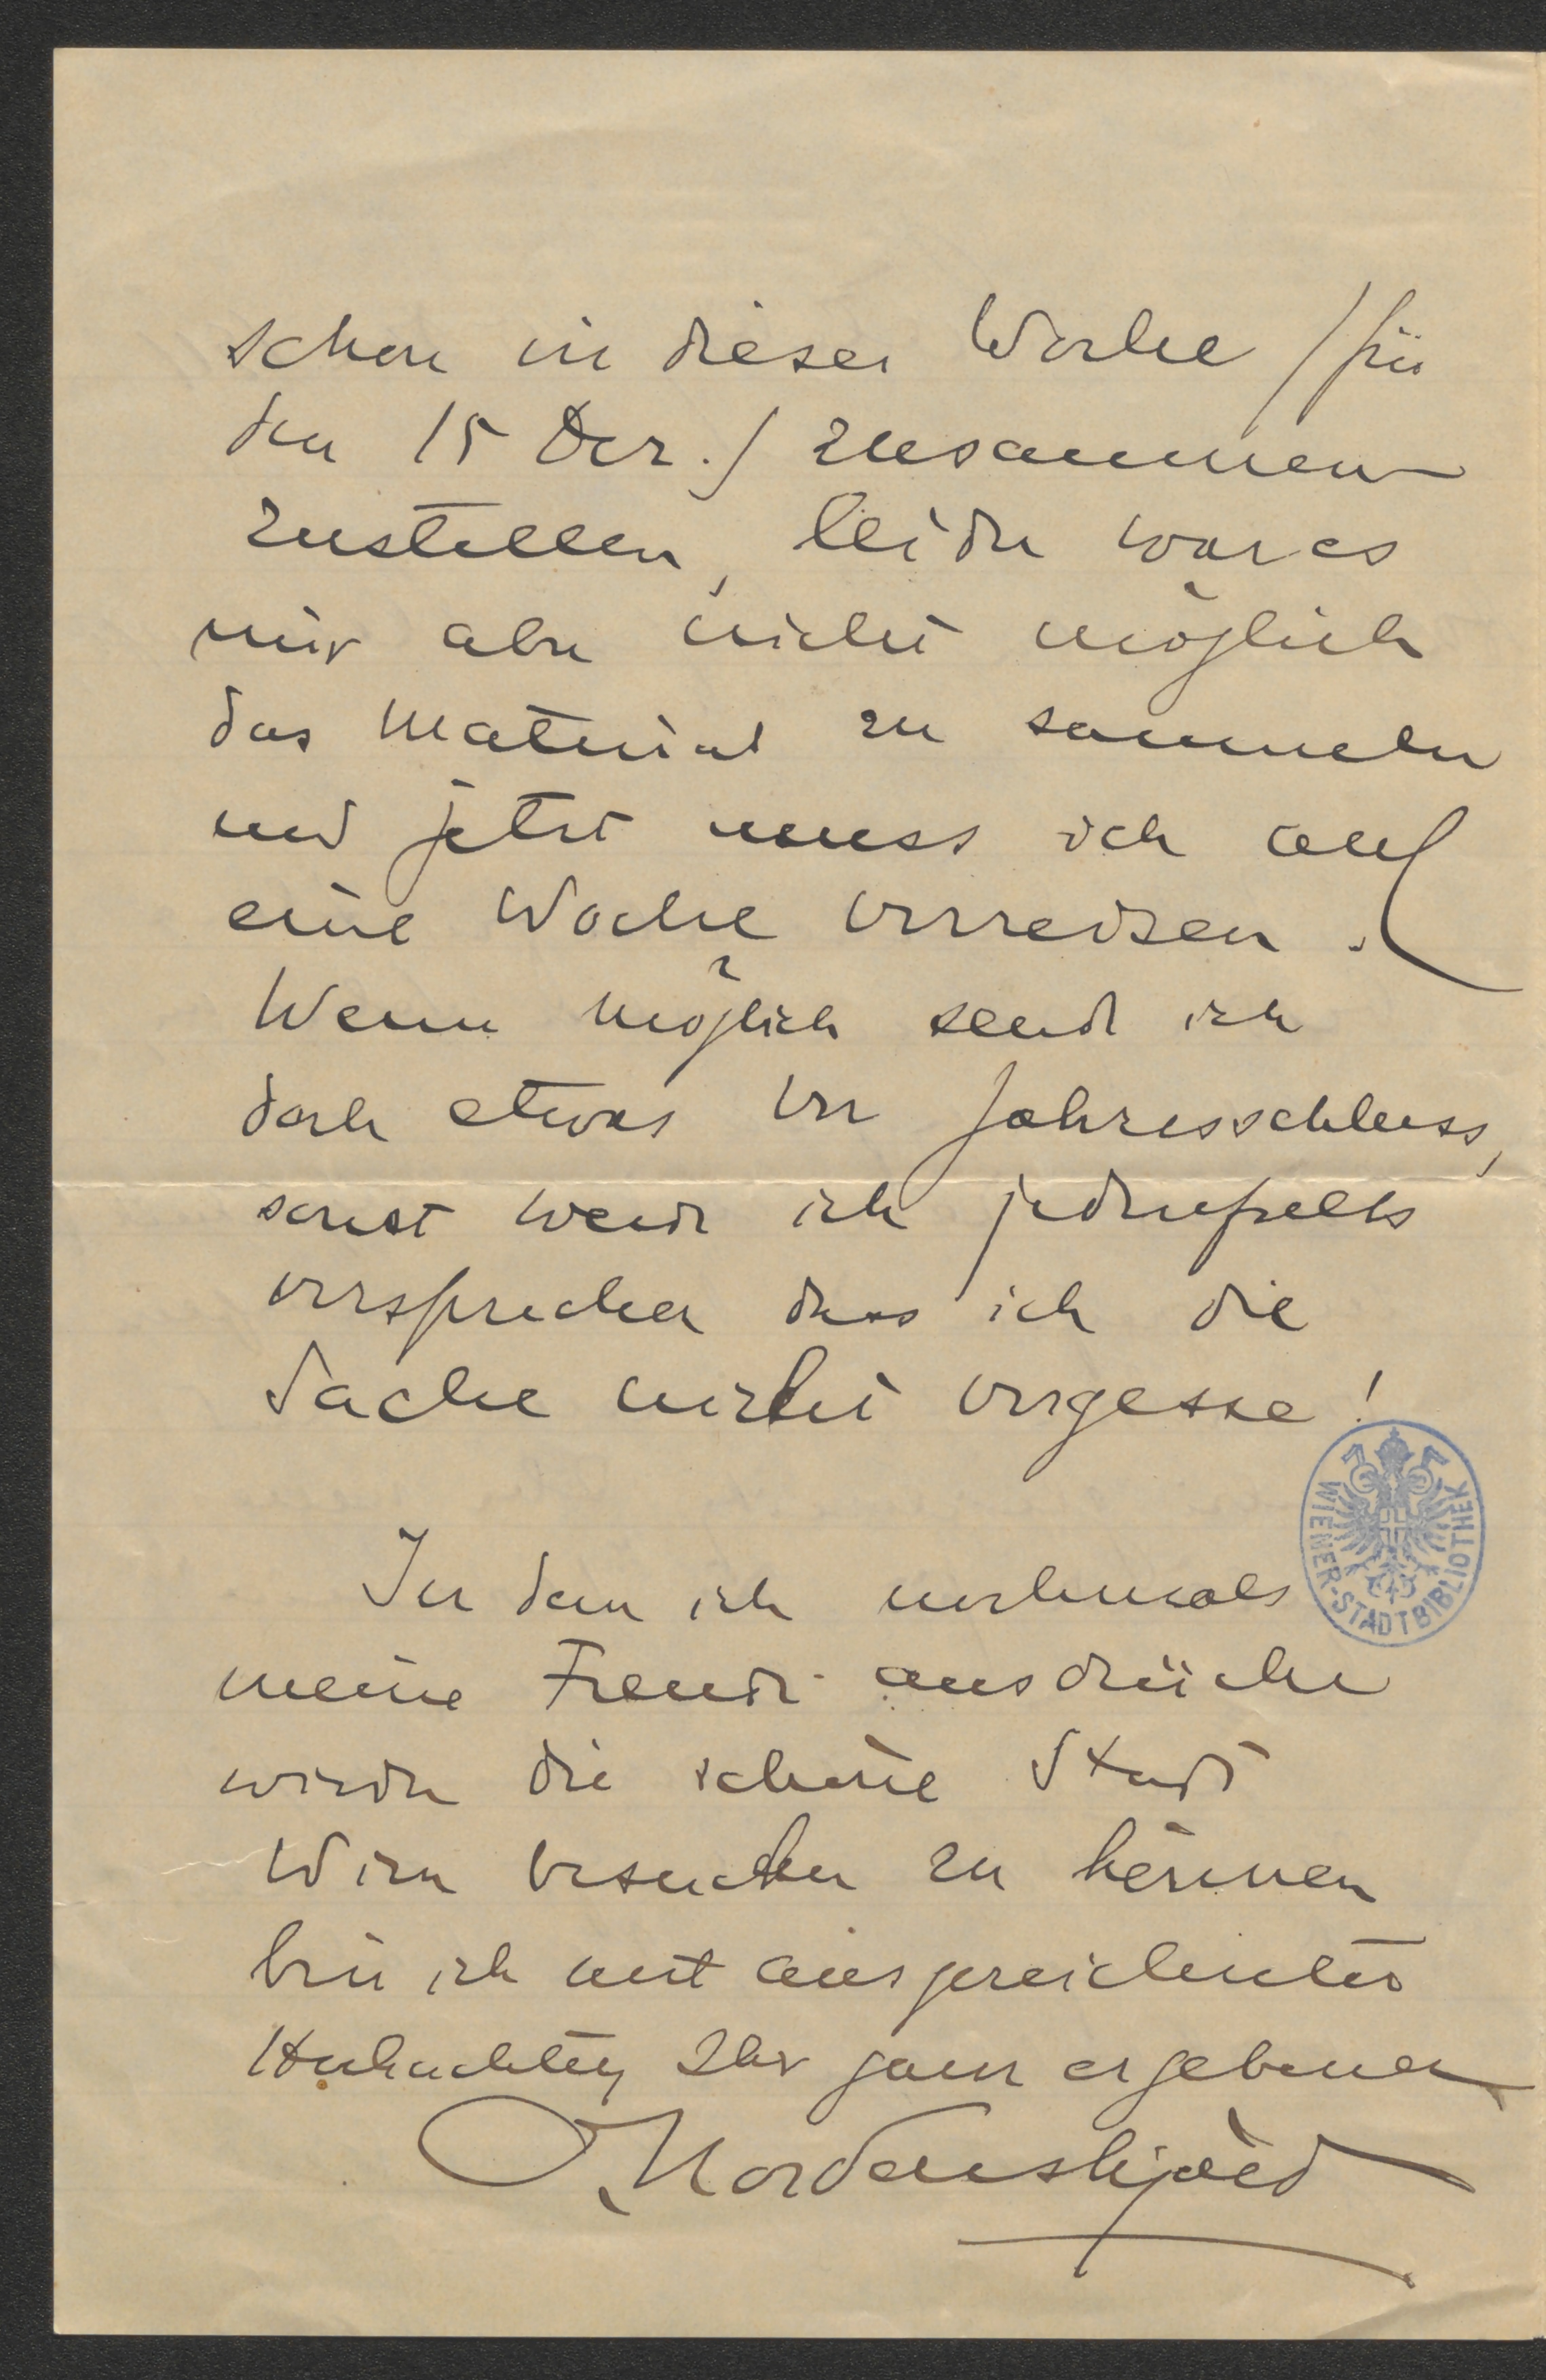 schon in dieser Woche / für
den 15 Dez. / zusammen
zustellen, leider war es
mir aber nicht möglich
das Material zu sammeln
und jetzt muss ich auf
eine Woche verreisen.
Wenn möglich sende ich
doch etwas vor Jahresschluss,
sonst werde ich jedenfalls
versprechen dass ich die
Sache nicht vergesse!
In dem ich nochmals
meine Freude ausdrücke
wieder die schöne Stadt
Wien besuchen zu können
bin ich mit ausgezeichneter
Hochachtung Ihr ganz ergebener
O Nordenskjöld
WIENER-STADTBIBLIOTHEK